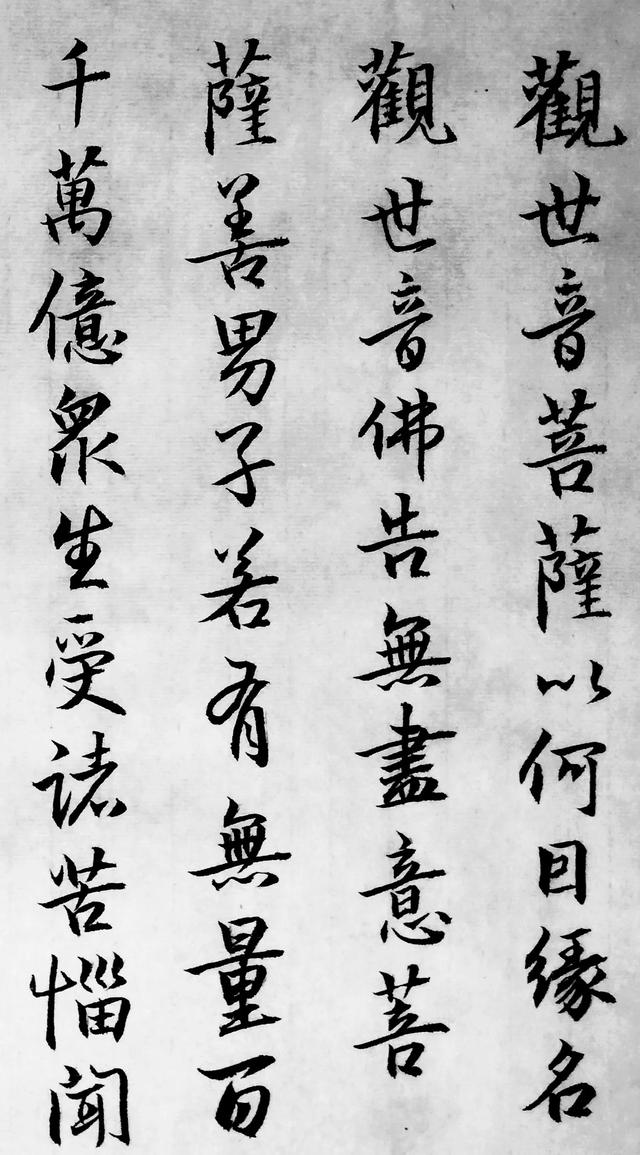 觀世音菩薩以何因緣名
觀世音佛告無盡意菩
薩善男子若有無量百
千萬億眾生受諸苦惱聞